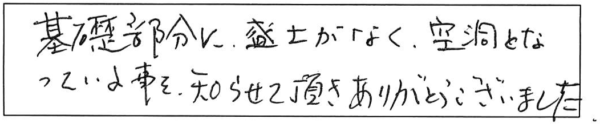 基礎部分に、盛土がなく、空洞とな
っている事を、知らせて頂きありがとうございました